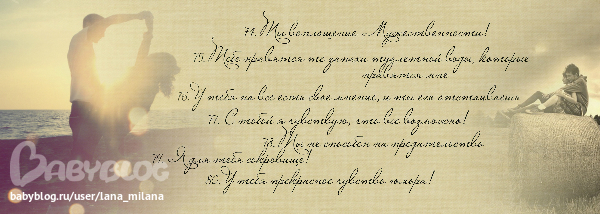 74. Ты воплощение «Мужественности!
75. Тебе нравятся те запахи туалетной воды, которые
нравятся мне
76. У тебя на все есть свое мнение, и ты его отстаиваешь
77. С тобой я чувствую, что все возможно!
78. Ты не способен на предательство
79. Я для тебя сокровище!
80. У тебя прекрасное чувство юмора!
BABYBLOG
babyblog.ru/user/lana_milana